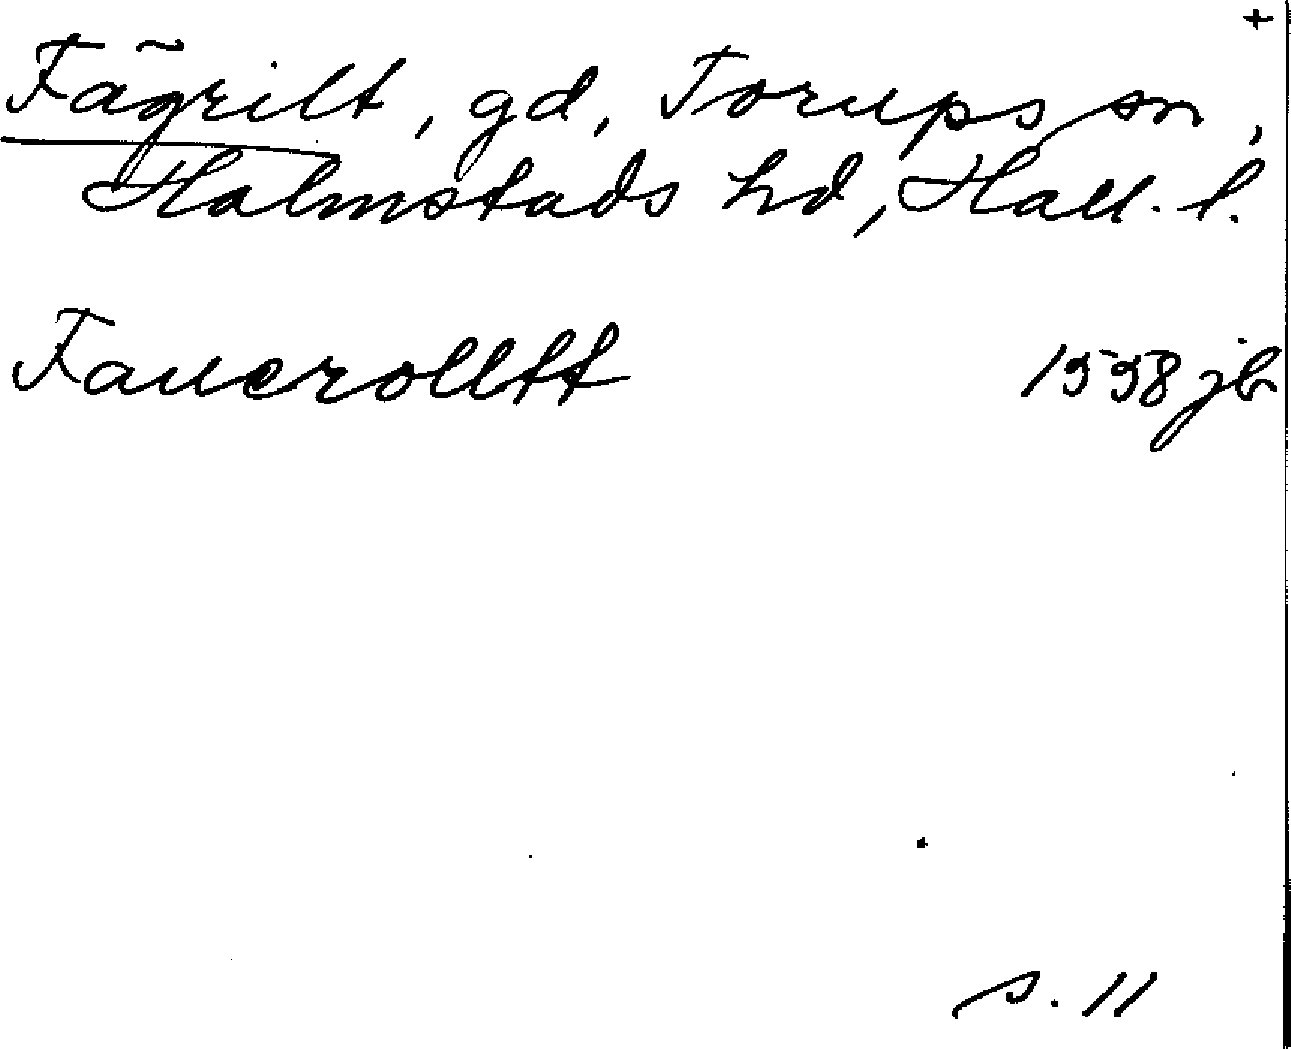 +
Fägrilt, gd, Torups sn,
Halmstads hd, Hall. l.
Fauerolltt 1558 jb
s. 11